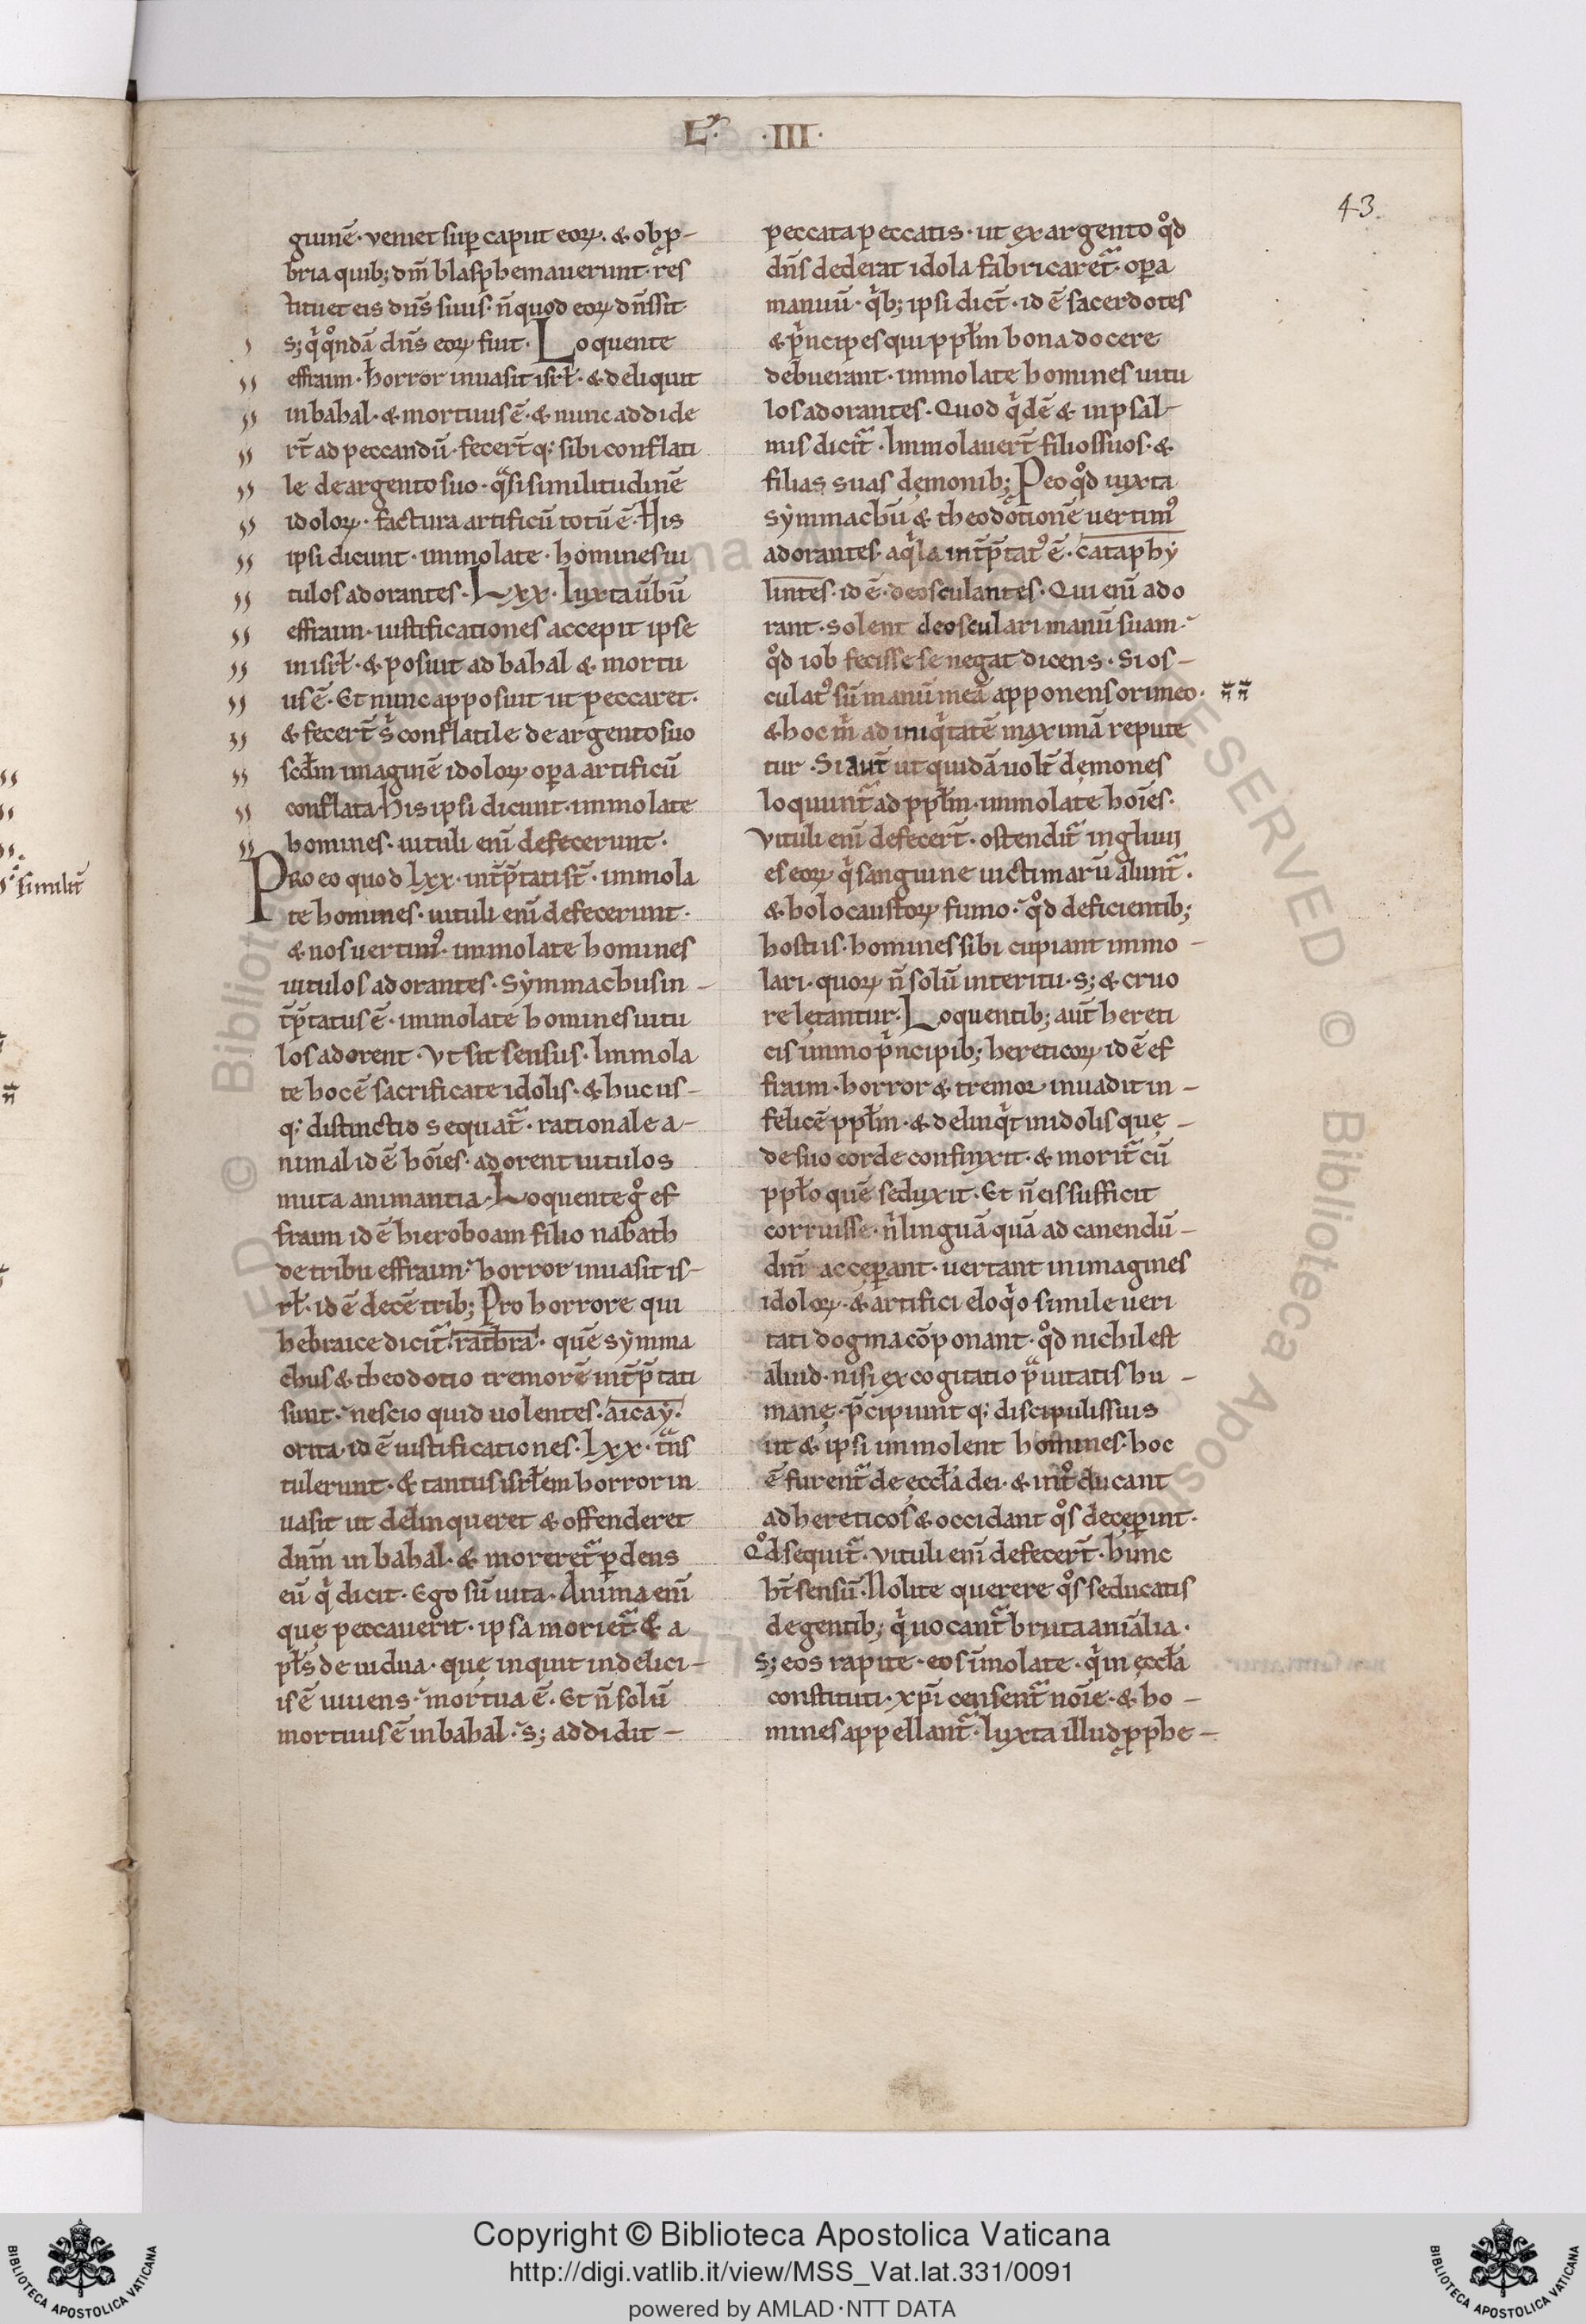 Lʳ. ·III·
43.
guinē· veniet sup̱ caput eoꝝ· & obp̱-
bria quib; dm̄ blasphemauerunt· res
tituet eis dn̄s suus· n̄ quod eoꝝ dn̄s sit·
s; qͥ qͦndā dn̄s eoꝝ fuit· Loquente
effraim· horror inuasit isrł· & deliquit
in bahal· & mortuus ē· & nunc addide
rt̄ ad peccandū· fecert̄q: sibi conflati
le de argento suo· qͣsi similitudinē
idoloꝝ· factura artificū totū ē· His
ipsi dicunt· immolate· homines ui
tulos adorantes· Lxx· Iuxta ūbū
effraim· iustificationes accepit ipse
in isrł· & posuit ad bahal & mortu
us ē· Et nunc apposuit ut peccaret·
& fecert̄ sͥ conflatile de argento suo
scdm̄ imaginē idoloꝝ opa artificū
conflata· his ipsi dicunt· immolate
homines· uituli enī defecerunt·
Pro eo quod Lxx· int̄p̄tati st̄· immola
te homines· uituli enī defecerunt·
& nos uertimꝰ· immolate homines
uitulos adorantes· Sẏmmachus in-
t̄p̄tatus ē· immolate homines uitu
los adorent· Vt sit sensus· Immola
te hoc ē sacrificate idolis· & huc us-
q: distinctio sequat̄· rationale a-
nimal id ē hoīes· adorent uitulos
muta animantia· Loquente gͦ ef
fraim id ē hieroboam filio nabath
de tribu effraim· horror inuasit is-
rł· id ē decē trib; Pro horrore qui
hebraice dicit̄· rathra· quē sẏmma
chus & theodotio tremorē int̄p̄tati
sunt· nescio quid uolentes· aicaẏ·
orita· id ē iustificationes· Lxx· tͣns
tulerunt· & tantus isrłem horror in
uasit ut delinqueret & offenderet
dnm̄ in bahal· & moreret̄ p̱dens
eū qͥ dicit· Ego sū uita· Anima enī
quę peccauerit· ipsa moriet̄· & a
płs de uidua· quę inquit in delici-
is ē uiuens· mortua ē· Et n̄ solū
mortuus ē in bahal· s; addidit-
peccata peccatis· ut ex argento qͦd
dn̄s dederat idola fabricaret̄· opa
manuū· qͥb; ipsi dict̄· id ē sacerdotes
& pͥncipes qui ppłm bona docere
debuerant· immolate homines uitu
los adorantes· Quod qͥdē & in psal-
mis dicit̄· Immolauert̄ filios suos· &
filias suas dęmonib; P eo qͦd iuxta
sẏmmachū & theodotionē uertimꝰ
adorantes· aqͥla int̄p̄tatꝰ ē· cataphẏ
lintes· id ē· deosculantes· Qui enī ado
rant· solent deosculari manū suam·
qͦd iob fecisse se negat dicens· Si os-
culatꝰ sū manū meā apponens ori meo·
& hoc m̄ ad iniqͥtatē maximā repute
tur· Si aut̄ ut quidā uolt̄ dęmones
loquunt̄ ad ppłm· immolate hoīes·
Vituli enī defecert̄· ostendit̄ ingluui
es eoꝝ qͥ sanguine uictimarū alunt̄·
& holocaustoꝝ fumo· qͦd deficientib;
hostiis· homines sibi cupiant immo-
lari· quoꝝ n̄ solū interitu· s; & cruo
re lętantur· Loquentib; aut̄ hereti
cis immo pͥncipib; hereticoꝝ id ē ef
fraim· horror & tremor inuadit in-
felicē ppłm· & delinqͥt in idolis quę-
de suo corde confinxit· & morit̄ cū
ppło quē seduxit· Et n̄ eis sufficit
corruisse· nͥ linguā quā ad canendū-
dm̄ accęperant· uertant in imagines
idoloꝝ· & artifici eloqͥo simile ueri
tati dogma cōponant· qͦd nichil est
aliud· nisi excogitatio pͣuitatis hu-
manę· p̄cipiunt q: discipulis suis
ut & ipsi immolent homines· hoc
ē furent̄ de ęccła dei· & intͦducant
ad hereticos & occidant qͦs decęperint·
Qͦd sequit̄· Vituli enī defecert̄· hunc
ht̄ sensū· Nolite querere qͦs seducatis
de gentib; qͥ uocant̄ bruta anīalia·
S; eos rapite· eos īmolate· qͥ in ęccła
constituti· xp̄i censent̄ noīe· & ho-
mines appellant̄· Iuxta illud p̱phe-
similit̄
Copyright © Biblioteca Apostolica Vaticana
http://digi.vatlib.it/view/MSS_Vat.lat.331/0091
powered by AMLAD·NTT DATA
BIBLIOTECA APOSTOLICA VATICANA
BIBLIOTECA APOSTOLICA VATICANA